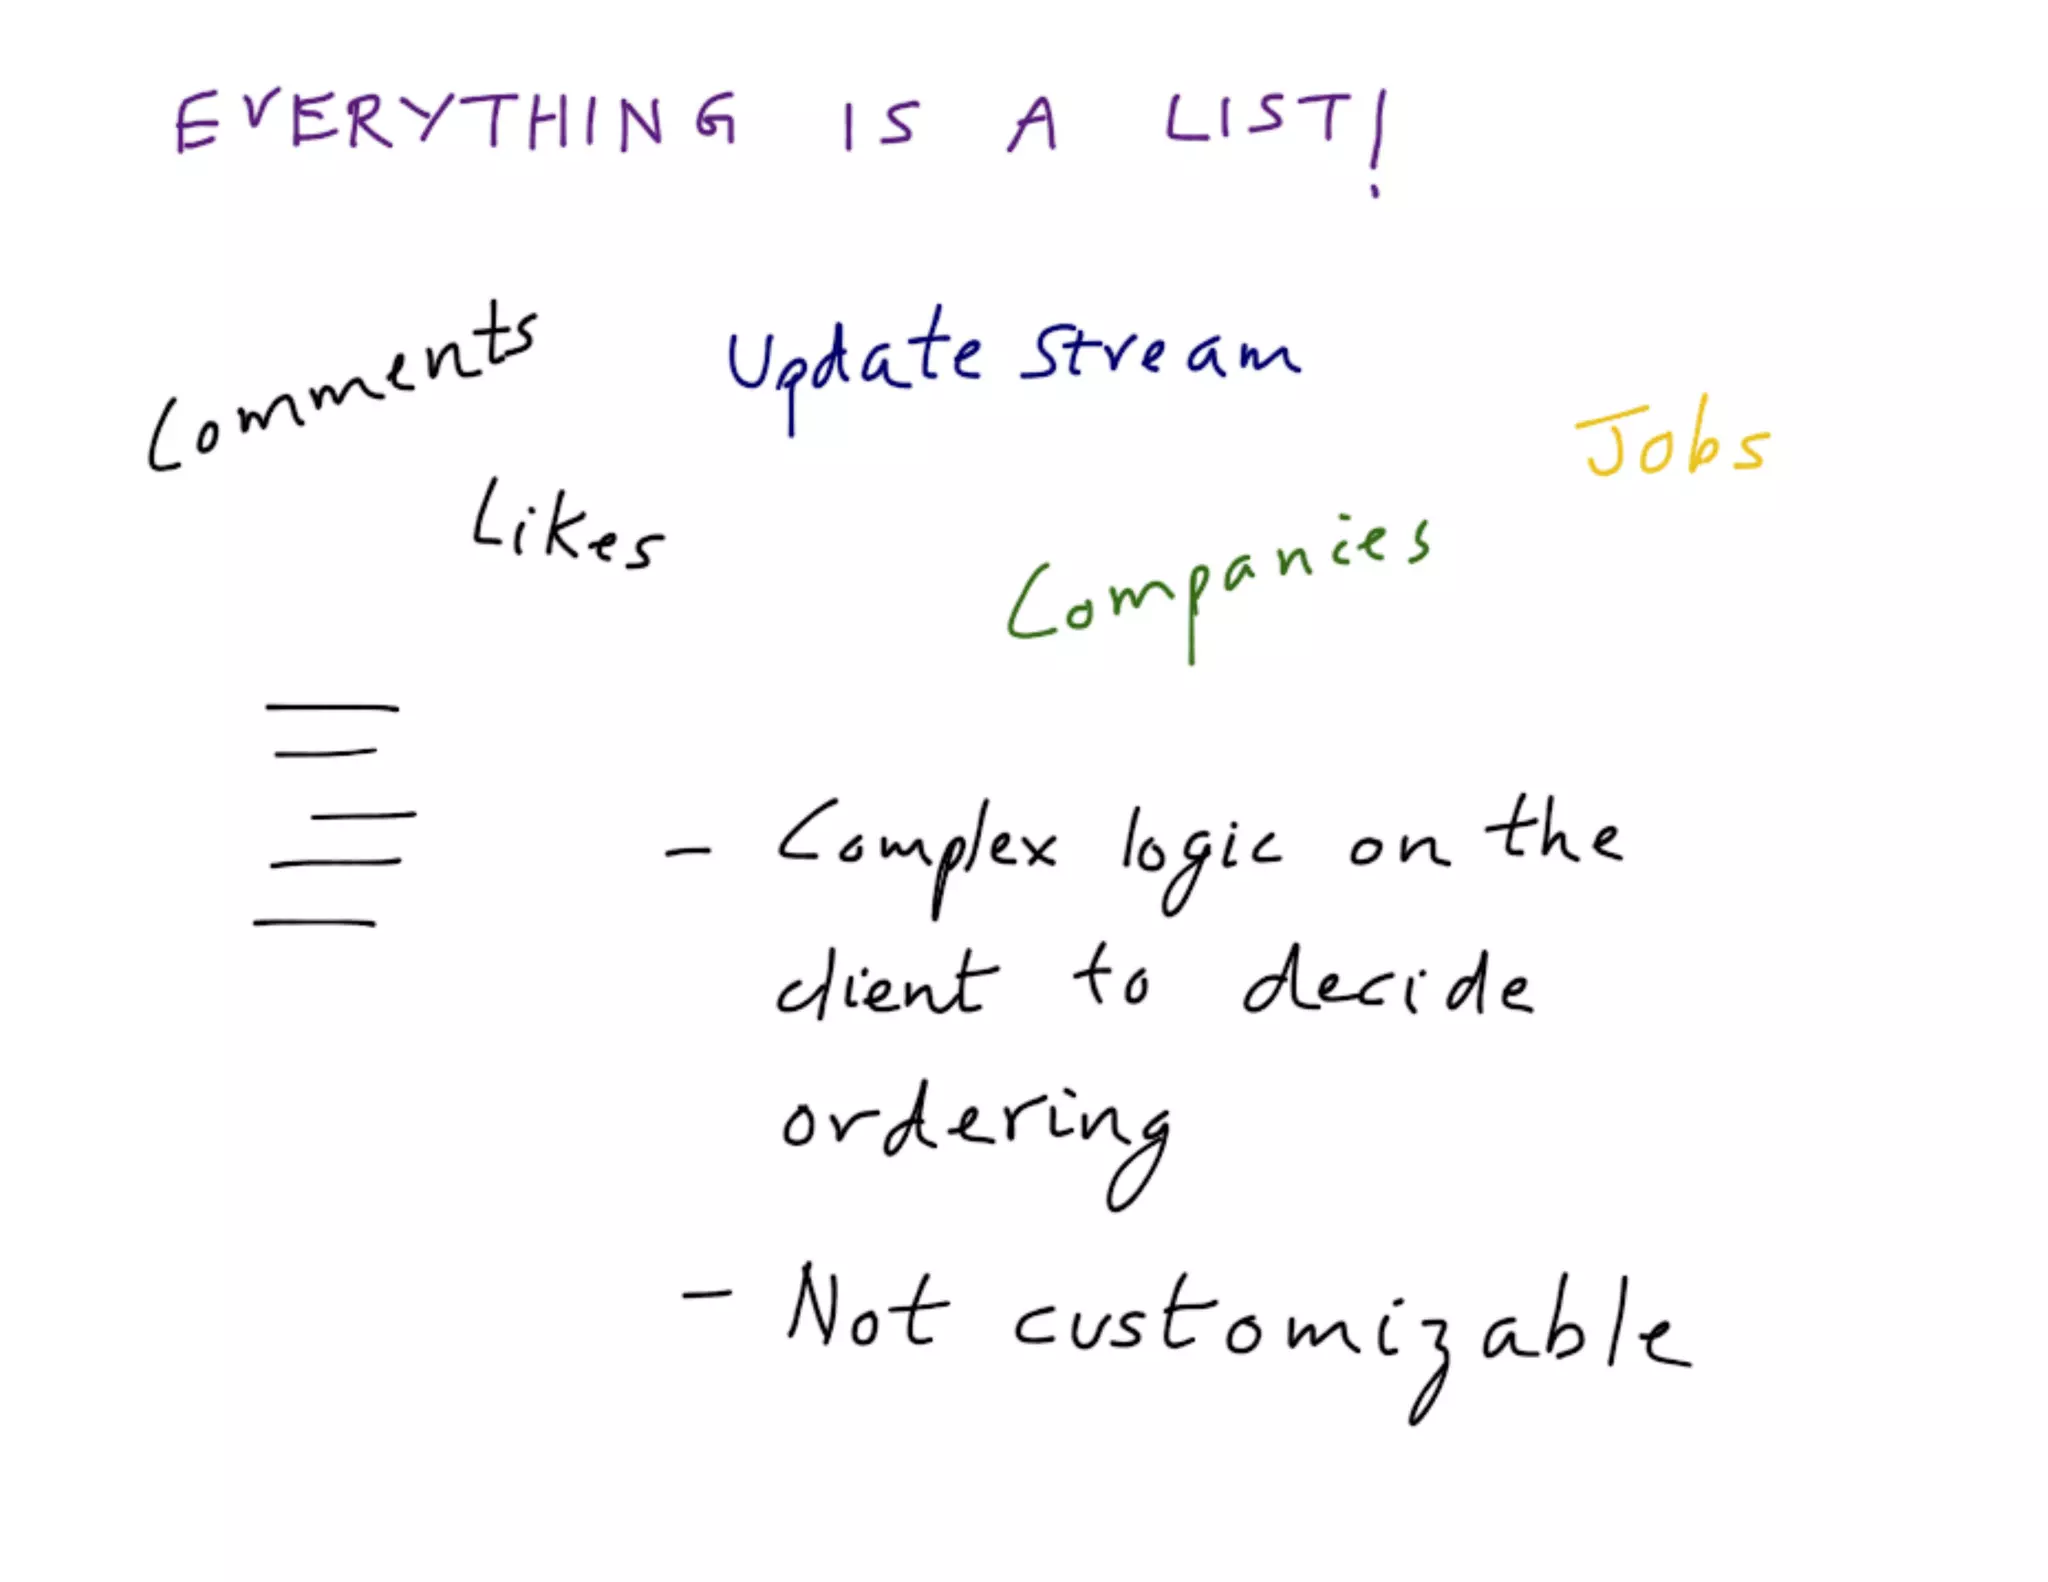 EVERYTHING IS A LIST!
Comments
Update Stream
Jobs
Likes
Companies
- Complex logic on the
client to decide
ordering
- Not customizable